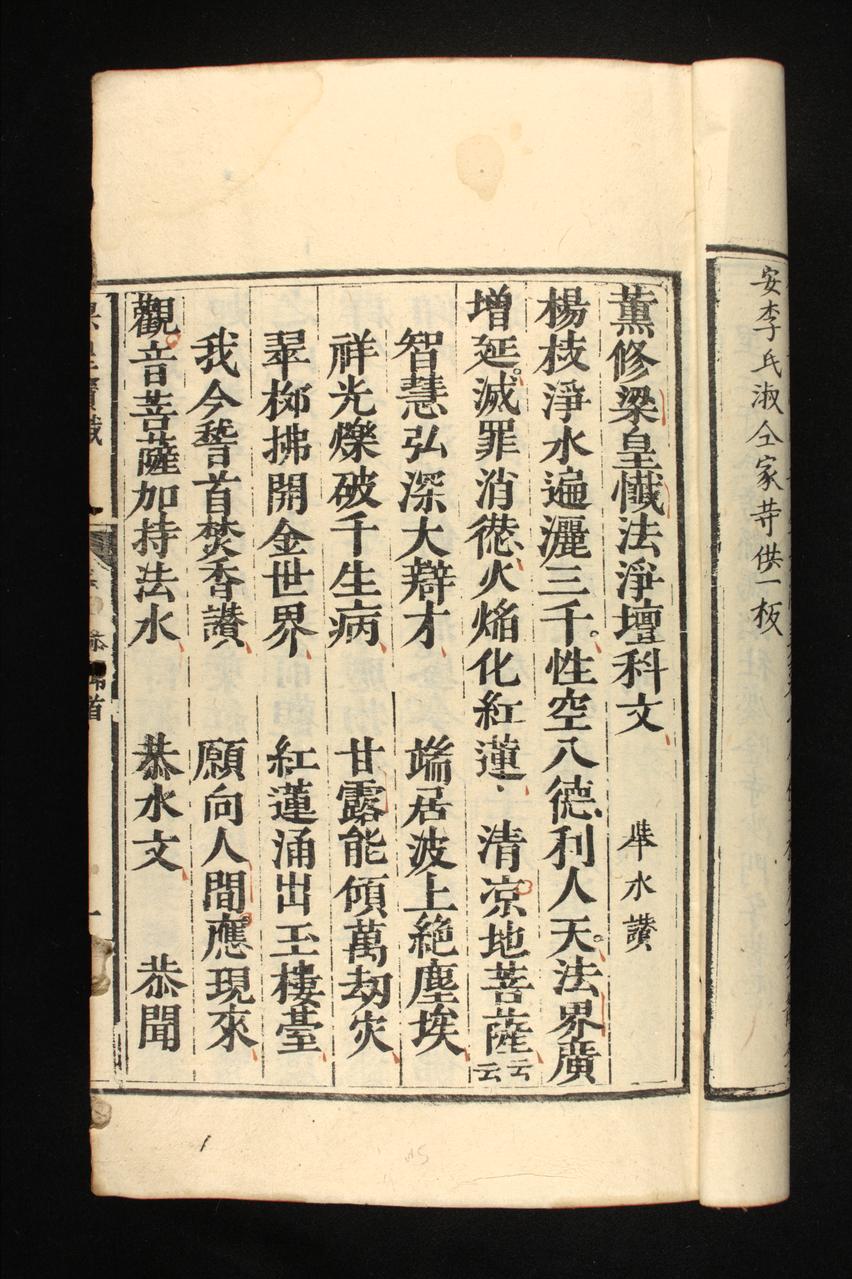 安李氏淑仝家等供一板
薰修梁皇懺法淨壇科文 舉水讚
楊枝淨水遍灑三千性空八德利人天法界廣
增延滅罪消愆火焰化紅蓮 清凉地菩薩云云
智慧弘深大辯才 端居波上絶塵埃
祥光爍破千生病 甘露能傾萬劫灾
翠栁拂開金世界 紅蓮涌出玉樓䑓
我今稽首焚香讃 願向人間應現來
觀音菩薩加持法水 恭水文 恭聞